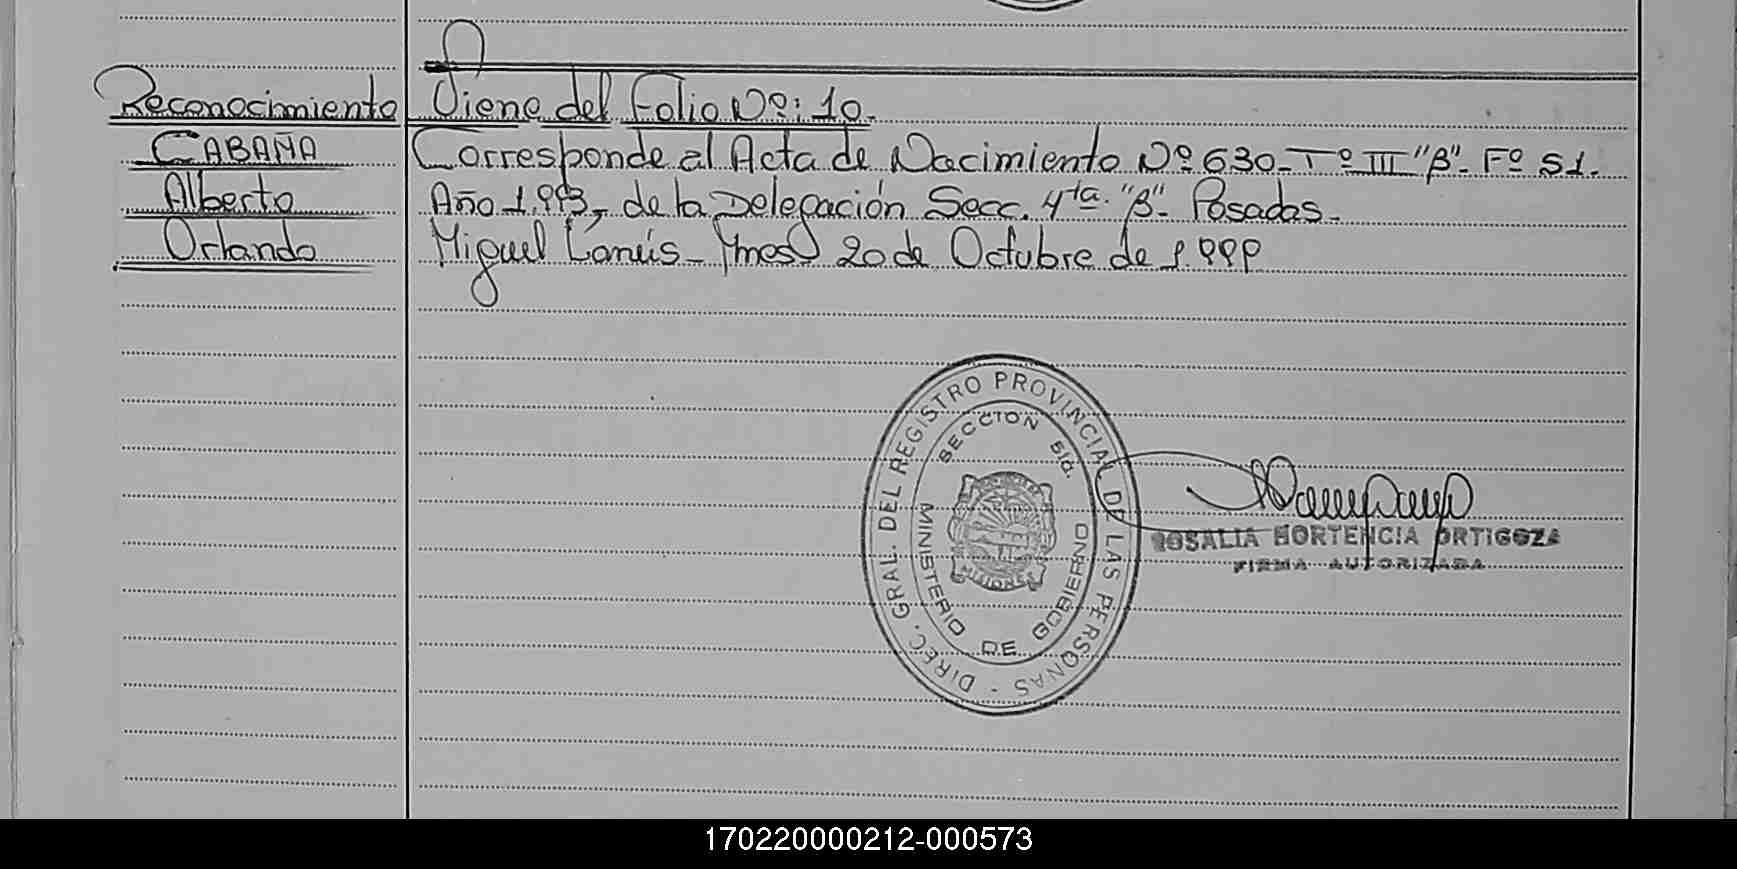 Reconocimiento
CABAÑA
Alberto
Orlando
Viene del Folio Nº: 10.
Corresponde al Acta de Nacimiento Nº 630_ Tº III "B"_ Fº 51.
Año 1.993, de la Delegación Secc. 4ta. "B"_ Posadas_
Miguel Lanús_ Mnes 20 de Octubre de 1.999
DIREC. GRAL. DEL REGISTRO PROVINCIAL DE LAS PERSONAS -
SECCION 5ta.
MINISTERIO DE GOBIERNO
MISIONES
ROSALIA HORTENCIA ORTIGOZA
FIRMA AUTORIZADA
170220000212-000573